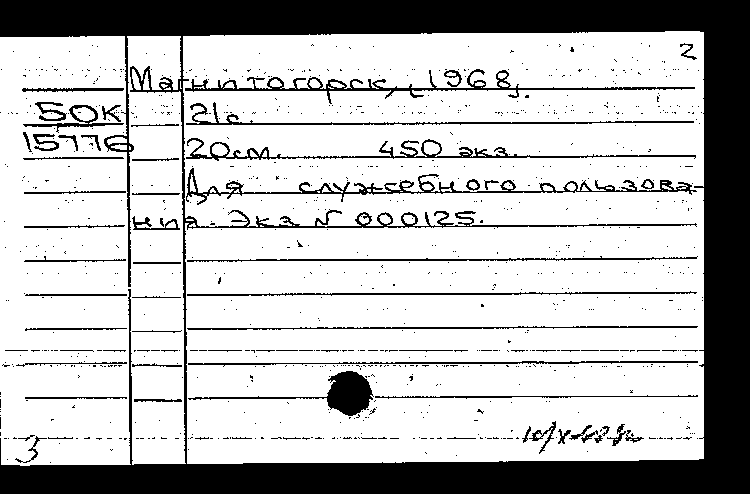 2
Магнитогорск, [1968].
50К 21с.
15776 20см. 450 экз.
Для служебного пользова-
ния. Экз N 000125.
3